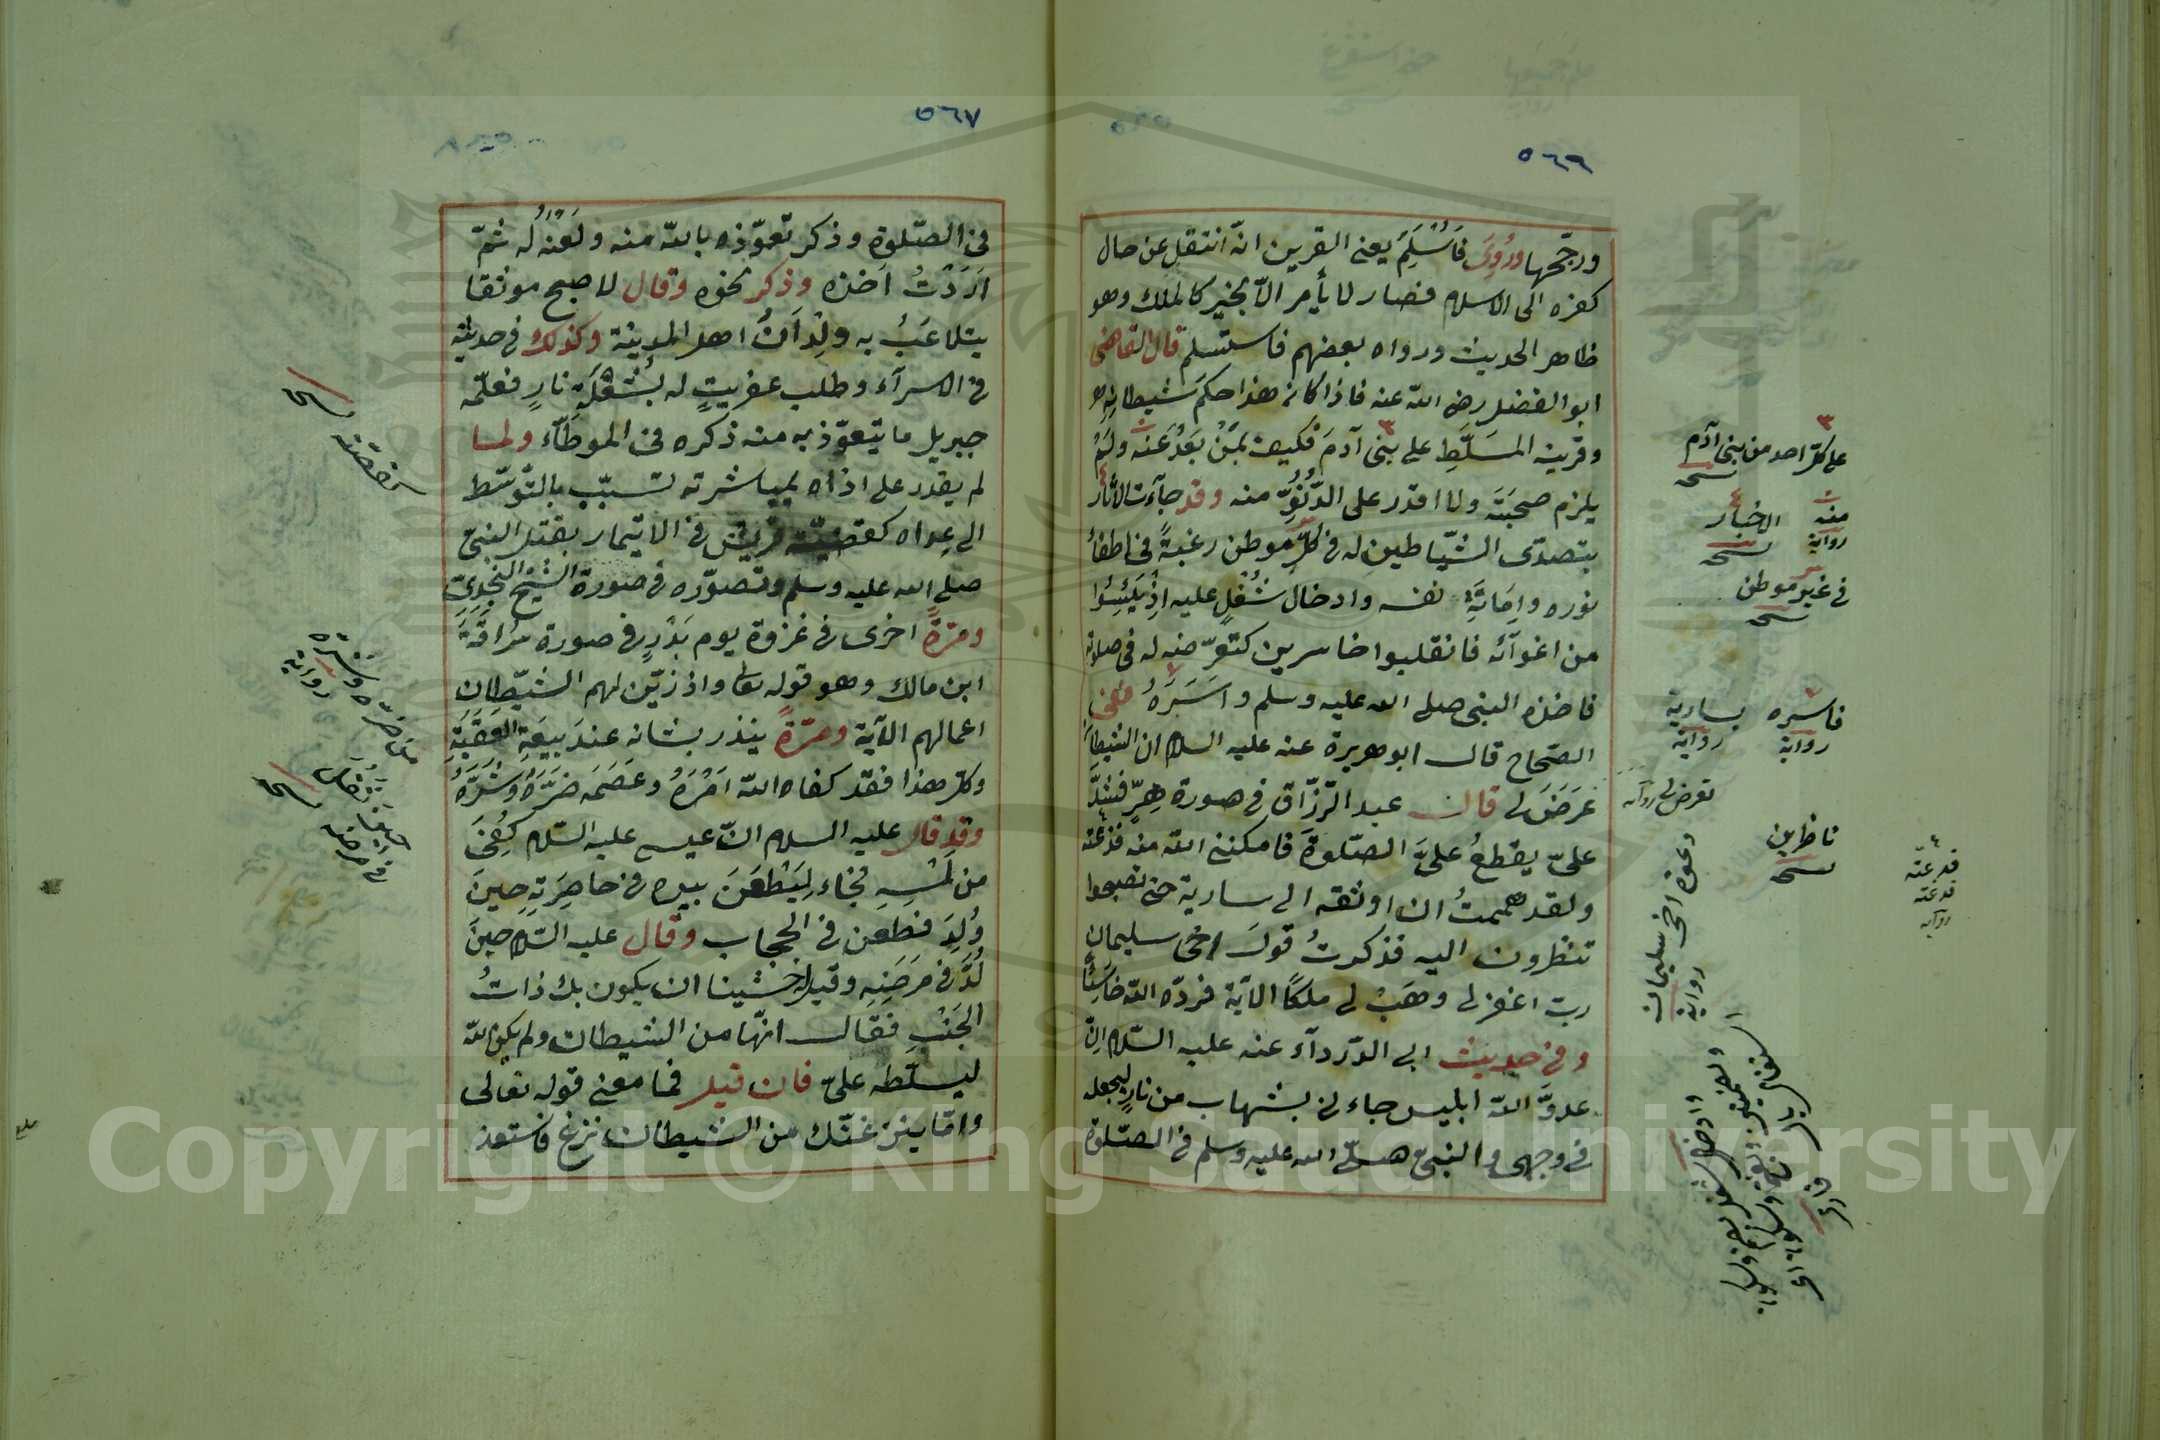 ٥٦٩
ورجّحها ورُوِىَ فَاَسْلَمَ يعنى القرين انّه انتقل عن حال
كفره الى الاسلام فصار لا يأمر الّا بخير كالملك وهو
ظاهر الحديث ورواه بعضهم فاستسلم قال القاضى
ابو الفضل رضى الله عنه فاذا كان هذا حكم شيطانه
وقرينه المسَلَّطِ على بنى آدمَ فكيف بمَنْ بَعُدَ عَنْه ولَمْ
يلزم صحبَتَه ولا اقدر على الدُّنُوِّ منه وقد جآءت الآثار
بتصدّى الشّياطين له فى كلّ موطن رغبةً فى اطفاء
نوره واِمَاتَةِ نفسه وادخال شُغْلٍ عليه اِذْ يَئِسُوا
من اغوآئه فانقلبوا خاسرين كتعرّضه له فى صلاته
فاخذه النبى صلى الله عليه وسلم واَسَرَهُ ففى
الصّحاح قال ابو هريرة عنه عليه السلام ان الشيطان
عَرَضَ لى قال عبد الرّزّاق فى صورة هِرٍّ فشَدَّ
علىّ يقطعُ علىَّ الصّلوةَ فامكننى الله منه فذعتّه
ولقد هممتُ ان اوثقه الى سارية حتى تصبحوا
تنظرون اليه فذكرتُ قولَ اخى سليمان
ربّ اغفر لى وهَبْ لى ملكًا الآية فردّه الله خاسِئًا
وفى حديث ابى الدّردآء عنه عليه السّلام اِنّ
عدوَّ اللّه ابليس جاءنى بشهاب من نارٍ ليجعله
فى وجهى والنبىّ صلّى الله عليه وسلم فى الصّلوة
على كلّ احد من بنى آدم
نسخه
منه
رواية
الاخبار
نسخه
فى غير موطن
نسخه
فاسره
رواية
بسارية
رواية
تعرض لى رواية
ناظرين
نسخه
فدعتّه
فذعته
رواية
دعوة اخى سليمان
رواية
٥٦٧
فى الصّلوة وذكر تعوّذه باللّه منه ولَعْنَه له ثمّ
اَرَدْتُ اَخذه وذكر نحوه وقال لاصبح موثقا
يتلاعَبُ به وِلْدَانُ اهل المدينة وكذلك فى حديثه
فى الاسرآء وطلب عفريتٍ له بشُعْلَةِ نارٍ فعلّمه
جبريل ما يتعوّذ به منه ذكره فى الموطّآء ولما
لم يقدر على اذاه بمباشرته تسبّب بالتّوسّط
الى عِداه كقضيّة قريش فى الايتمار بقتل النبىّ
صلى الله عليه وسلم وتصوّره فى صورة الشيخ النجدىّ
ومرّةً اخرى فى غزوة يوم بَدْرٍ فى صورة سُرَاقَةَ
ابن مالك وهو قوله تعا واذ زيّن لهم الشيّطان
اعمالهم الآية ومرّةً ينذر بشانه عند بيعَةِ العَقَبَةِ
وكلّ هذا فقد كفاه اللّه اَمْرَهُ وعَصَمَه ضَرَّهُ وشَرَّهُ
وقد قال عليه السلام انّ عيسى عليه السّلام كُفِىَ
من لَمْسِهِ فجاء لِيَطْعَنَ بيده فى خاصِرَتِهِ حينَ
وُلِدَ فطعن فى الحِجَاب وقال عليه السّلام حينَ
لُدَّ فى مرَضِهِ وقيل له خشينا ان يكون بك ذاتُ
الجَنْبِ فقال انّها من الشيطان ولم يكن اللّه
ليسلّطه علىّ فان قيل فما معنى قوله تعالى
وامّا ينزغنّك من الشيطان نزغ فاستعذ
كقصّته
نسخه
رواية
نسخه
Copyright © King Saud University